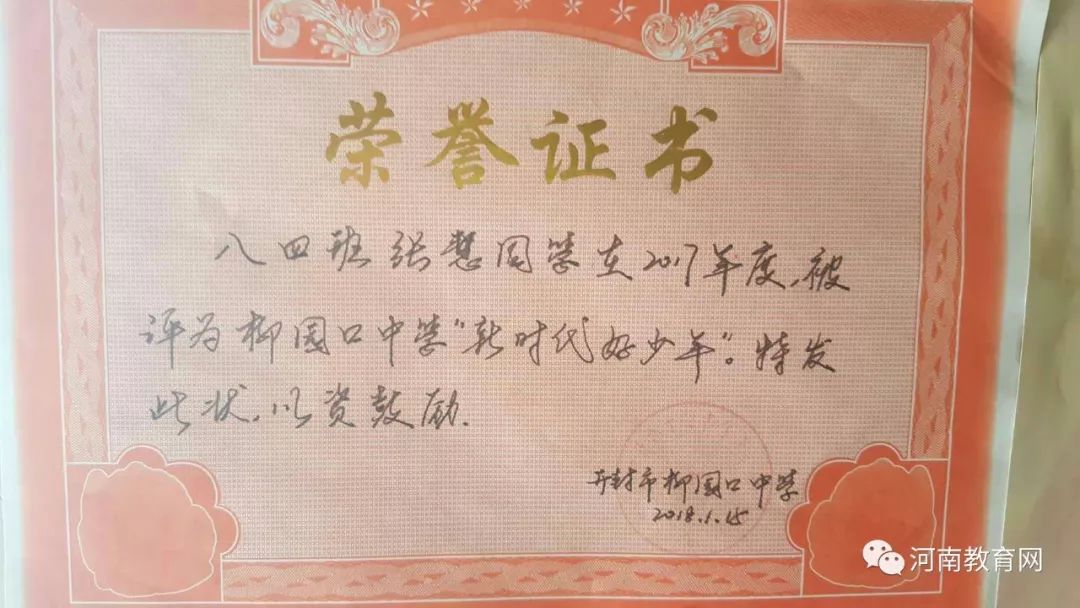 荣誉证书
八四班张慧同学在2017年度,被
评为柳园口中学"新时代好少年"。特发
此状,以资鼓励.
开封市柳园口中学
2018.1.15
河南教育网